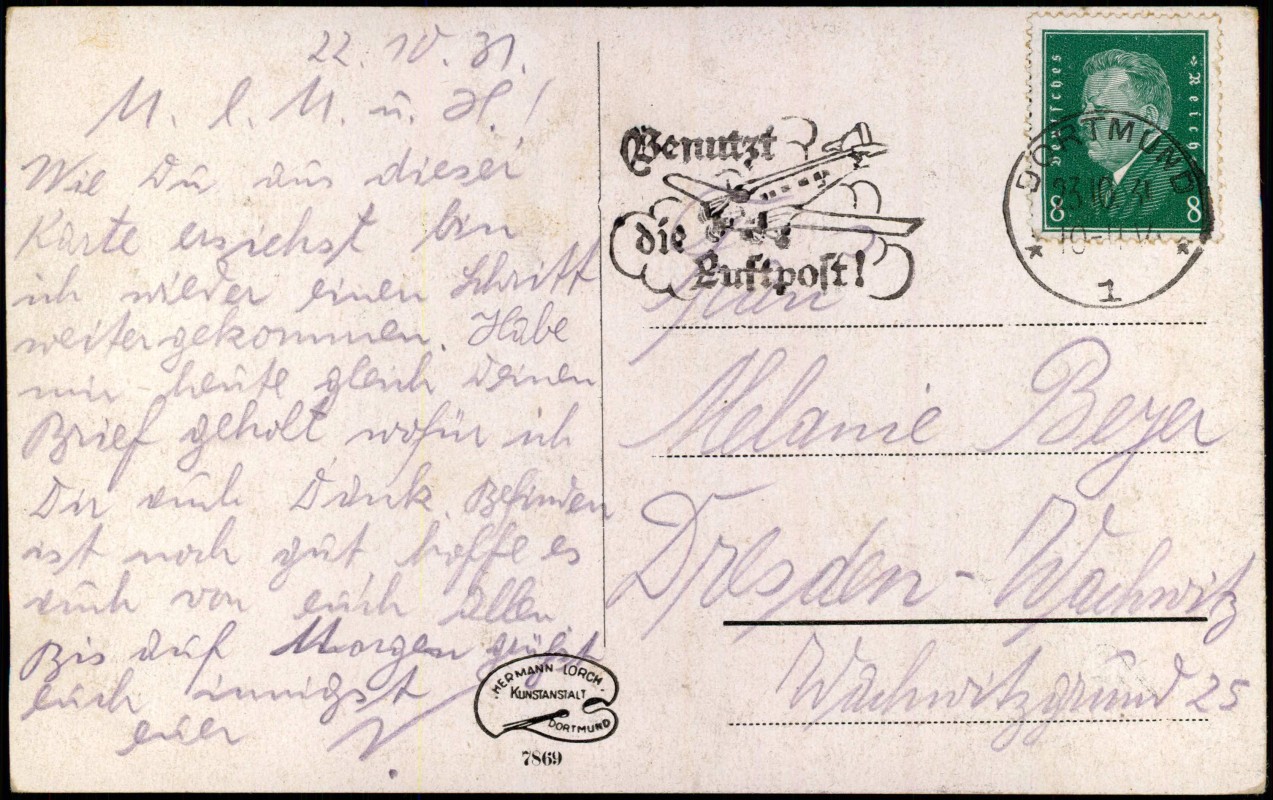 22. 10. 31.
M. l. M. u. H.!
Wie Du aus dieser
Karte ersiehst bin
ich wieder einen Schritt
weitergekommen. Habe
mir heute gleich Deinen
Brief geholt, wofür ich
Dir auch Dank. Befinden
ist noch gut hoffe es
auch von euch Allen
Bis auf Morgen grüßt
euch innigst
euer
Benutzt
die
Luftpost!
Deutsches Reich
8 8
DORTMUND
23.10.31
10-11 V.
* 1 *
Frau
Melanie Beyer
Dresden-Wachwitz
Wachwitzgrund 25
HERMANN LORCH.
KUNSTANSTALT
DORTMUND
7869